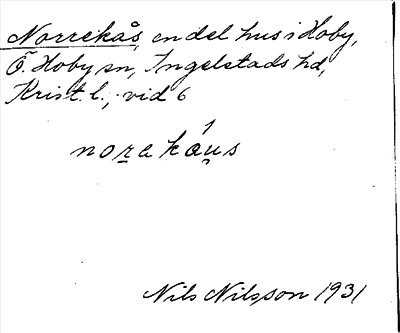 Norrekås, en del hus i Hoby,
Ö. Hoby sn, Ingelstads hd,
Krist. l., vid 6
norakáus
Nils Nilsson 1931